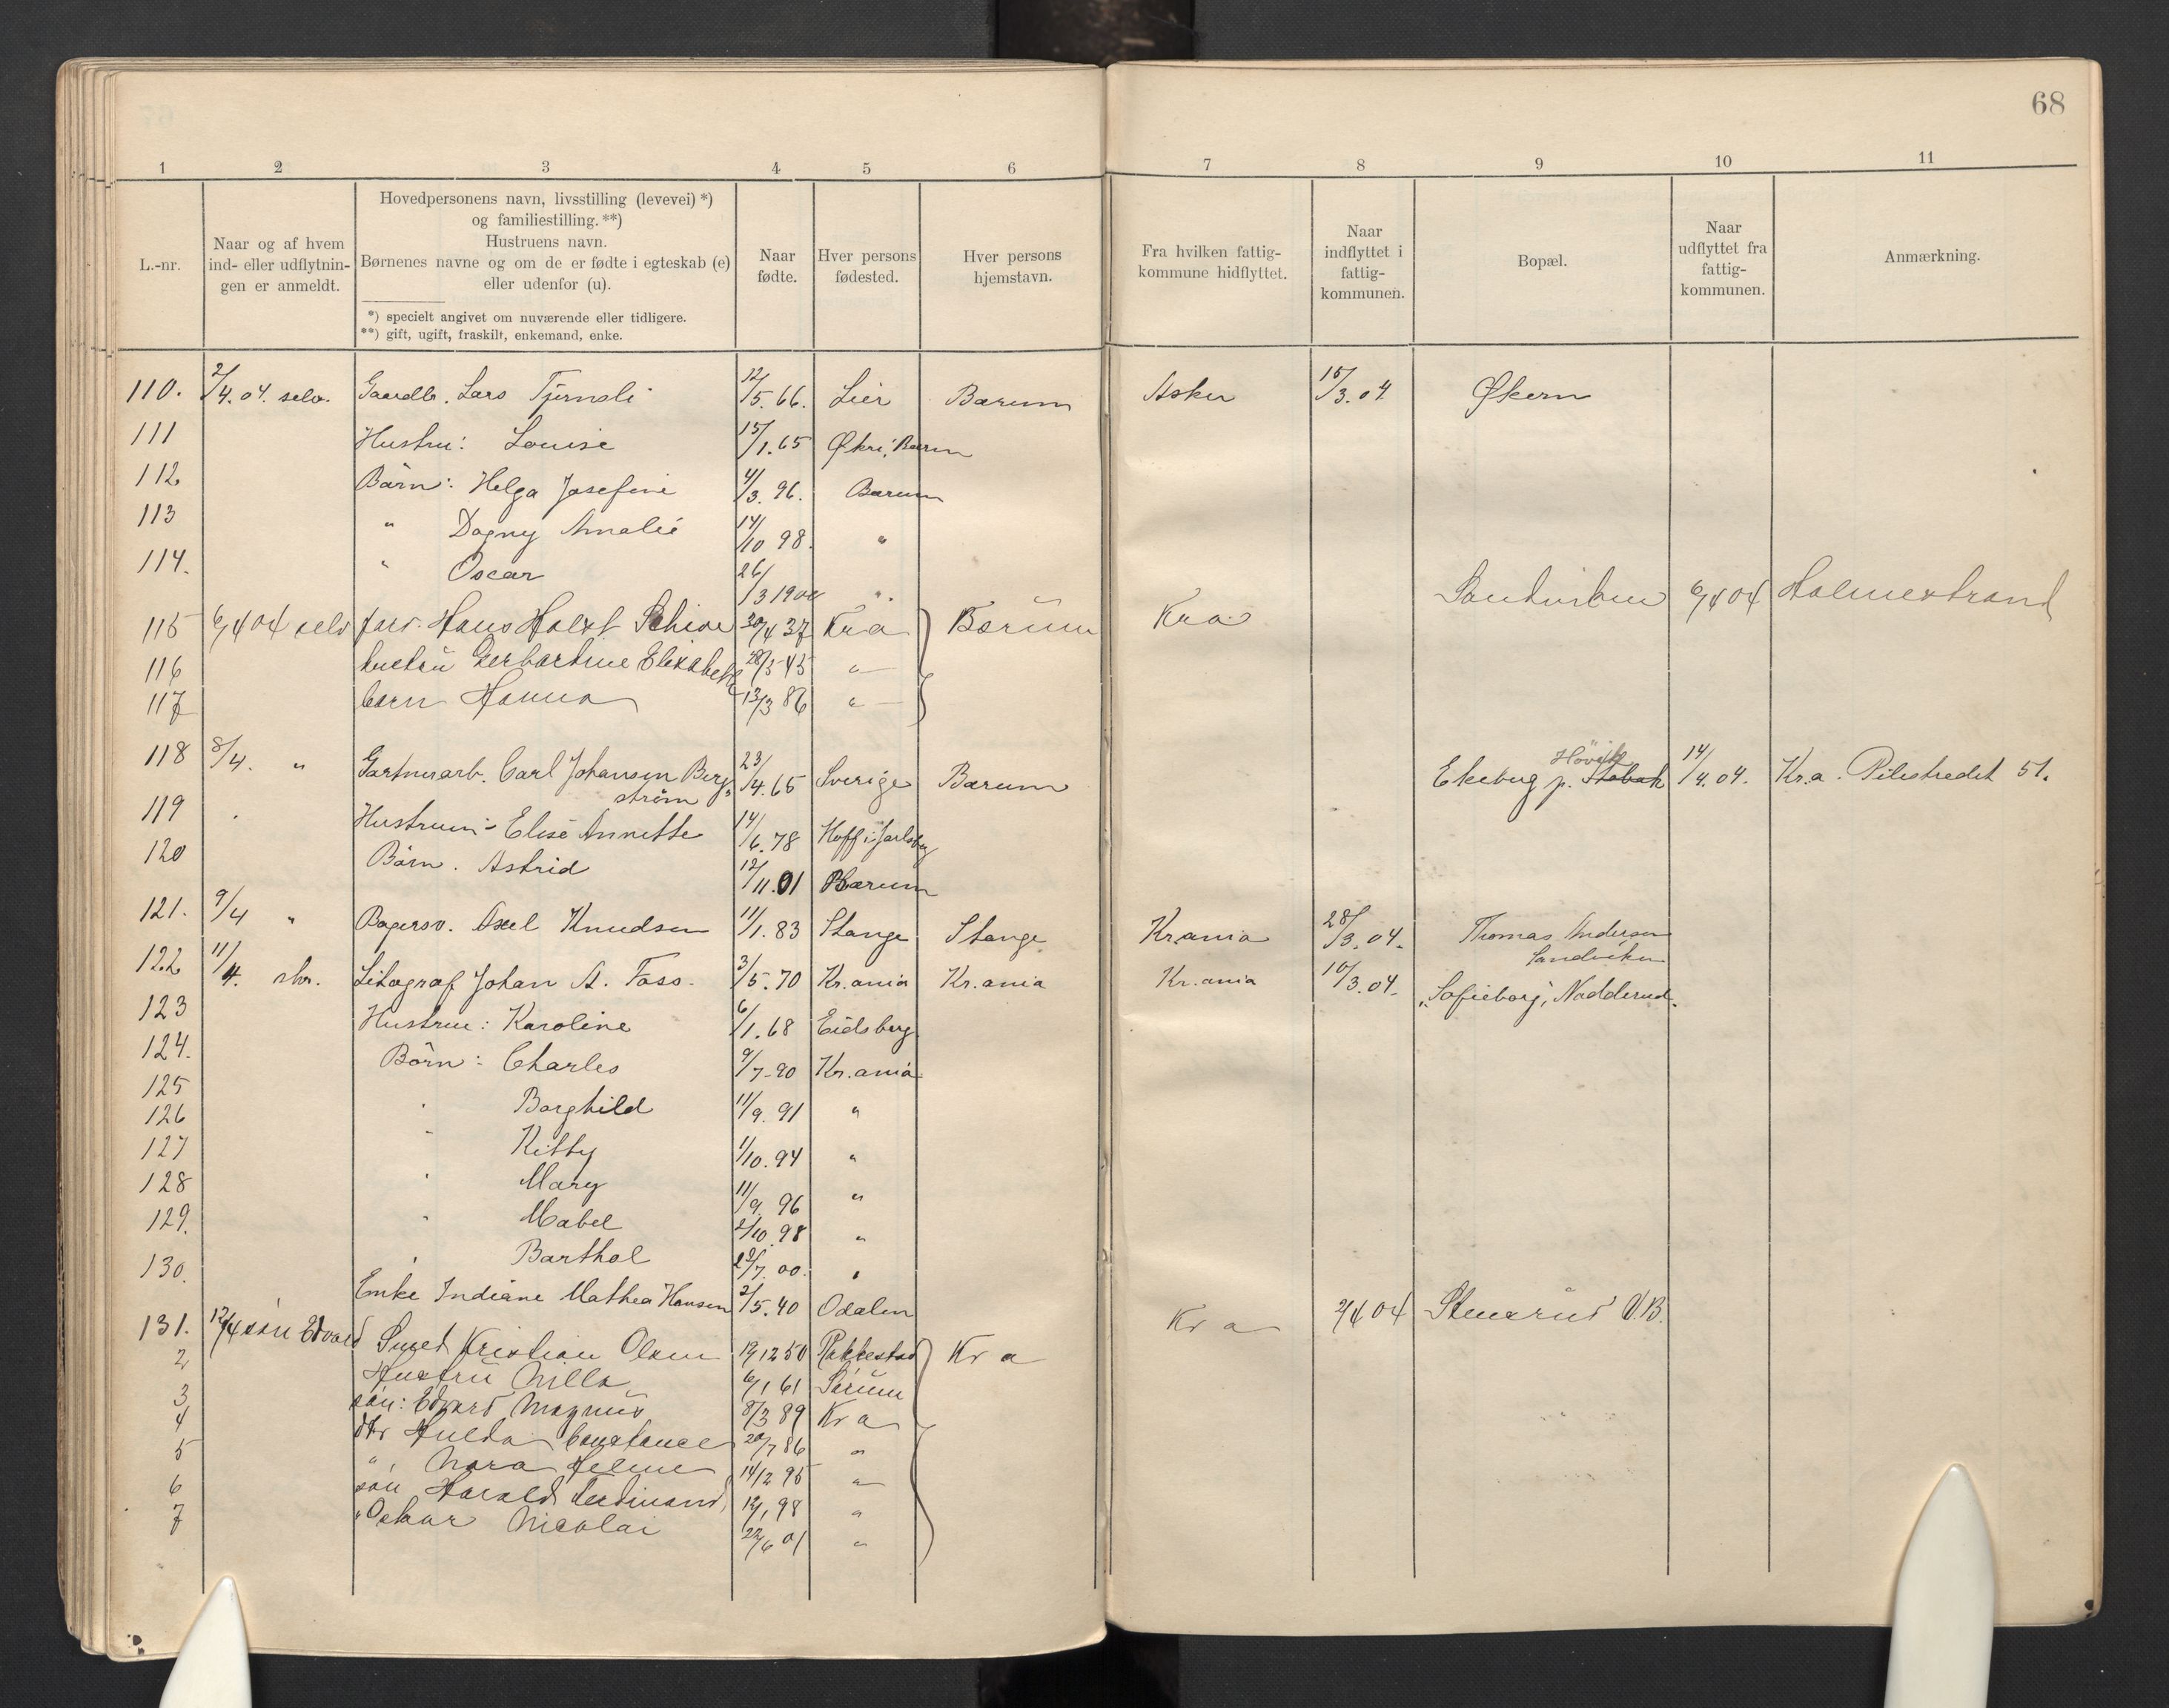 68
1 2 3 4 5 6 7 8 9 10 11
L.-nr.
Naar og af hvem
ind- eller udflytnin-
gen er anmeldt.
Hovedpersonens navn, livsstilling (levevei) *)
og familiestilling. **)
Hustruens navn.
Børnenes navne og om de er fødte i egteskab (e)
eller udenfor (u).
*) specielt angivet om nuværende eller tidligere.
**) gift, ugift, fraskilt, enkemand, enke.
Naar
fødte.
Hver persons
fødested.
Hver persons
hjemstavn.
Fra hvilken fattig-
kommune hidflyttet.
Naar
indflyttet i
fattig-
kommunen.
Bopæl.
Naar
udflyttet fra
fattig-
kommunen.
Anmærkning.
110. 2/4.04. selv. Gaardb. Lars Tjernsli 12/5.66. Lier Bærum Asker 15/3.04 Økern
111 Hustru: Louise 15/1.65 Økri, Bærm
112 Børn: Helga Josefine 4/3.96. Bærum
113 " Dagny Amalie 14/10 98. "
114. " Oscar 26/3 1900 ".
115 6/4 04 selv Hans Holst Schive 30/4 37 Kra Bærum Kra Sandviken 6/4 04 Holmestrand
116 hustru Gerhardine Elisabeth 28/3 43 "
117 barn Hanna 13/3 86 "
118 8/4. " Gartnerarb. Carl Johansen Berg- 23/4.65 Sverige Bærum Ekeberg p. Høvik Stabæk 14/4.04. Kr.a. Pilestredet 51.
strøm
119 Hustrum: Elise Annette 14/6.78 Hoff i Jarlsberg
120 Børn. Astrid 12/11.01 Bærum
121. 9/4 " Bagersv. Axel Knudsen 11/1.83 Stange Stange Kr.ania 28/3.04. Thomas Andersen
Sandviken
122 11/4. skr. Litograf Johan A. Foss. 3/5.70 Kr.ania Kr.ania Kr.ania 10/3.04. "Sofieborg", Nadderud.
123 Hustru: Karoline 6/1.68 Eidsberg
124. Børn: Charles 9/7-90 Kr.ania
125 " Borghild 11/9.91 "
126 " Kitty 1/10.94 "
127 " Mary 11/9.96 "
128 " Mabel 2/10.98 "
129. " Barthol 29/7.00. "
130. Enke Indiane Mathea Hansen 2/5.40 Odalen
131. 12/4 søn Edvard Smed Kristian Olsen 19/12 50 Rakkestad Kr a Kr a 2/4 04 Stenerud V.B.
2 Hustru Milla 6/1 61 Sørum
3 søn: Edvard Magnus 8/3 89 Kr a
4 dtr Hulda Constance 20/7 86 "
5 " Nora Helene 14/2 95 "
6 søn Harald Ferdinand 12/1 98 "
7 " Oskar Nicolai 22/6 01 "